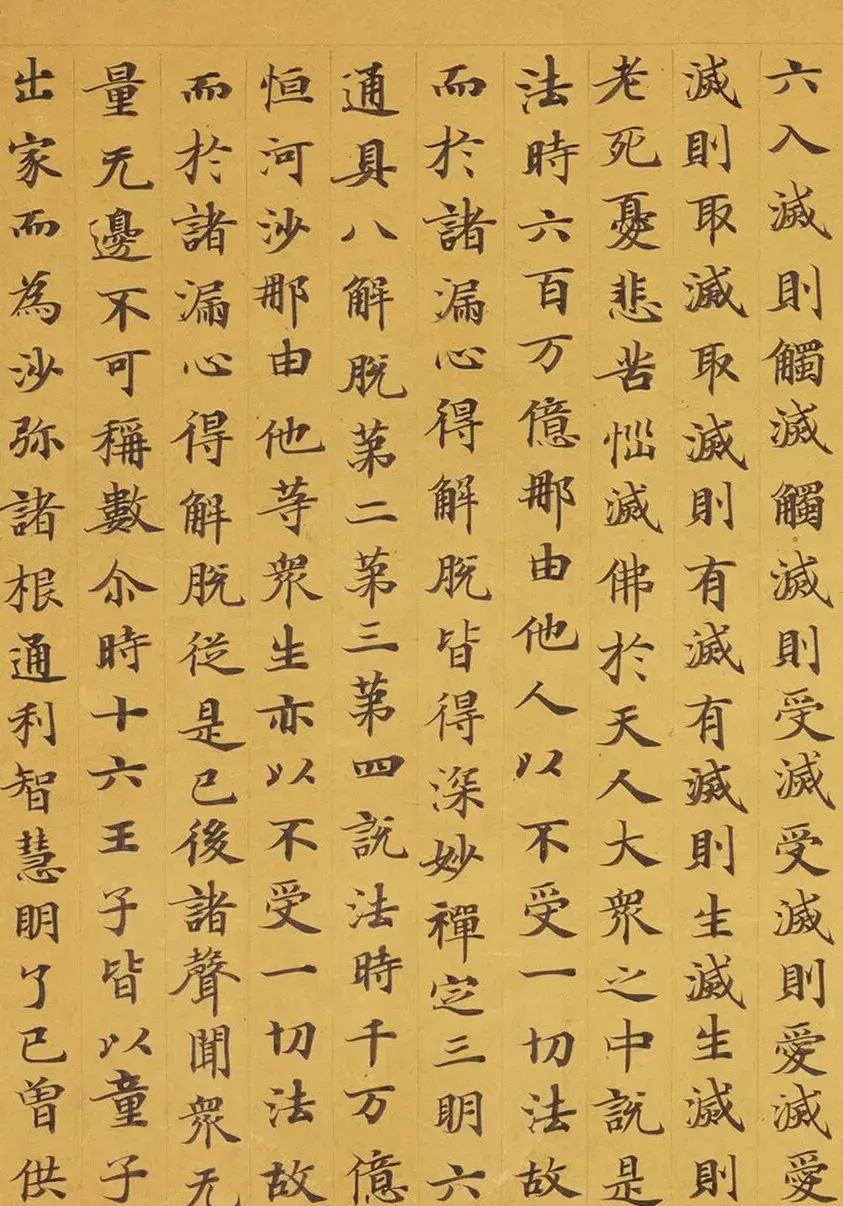 六入滅則觸滅觸滅則受滅受滅則愛滅愛
滅則取滅取滅則有滅有滅則生滅生滅則
老死憂悲苦惱滅佛於天人大衆之中說是
法時六百万億那由他人以不受一切法故
而於諸漏心得解脫皆得深妙禪定三明六
通具八解脫第二第三第四說法時千万億
恒河沙那由他等衆生亦以不受一切法故
而於諸漏心得解脫從是已後諸聲聞衆无
量无邊不可稱數尒時十六王子皆以童子
出家而為沙弥諸根通利智慧明了已曾供